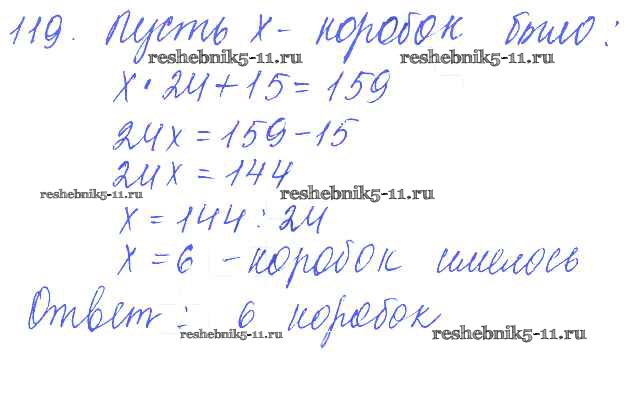 119. Пусть x - коробок было:
reshebnik5-11.ru reshebnik5-11.ru
x · 24 + 15 = 159
24x = 159 - 15
24x = 144
reshebnik5-11.ru reshebnik5-11.ru
x = 144 : 24
x = 6 - коробок имелось
Ответ: 6 коробок
reshebnik5-11.ru reshebnik5-11.ru